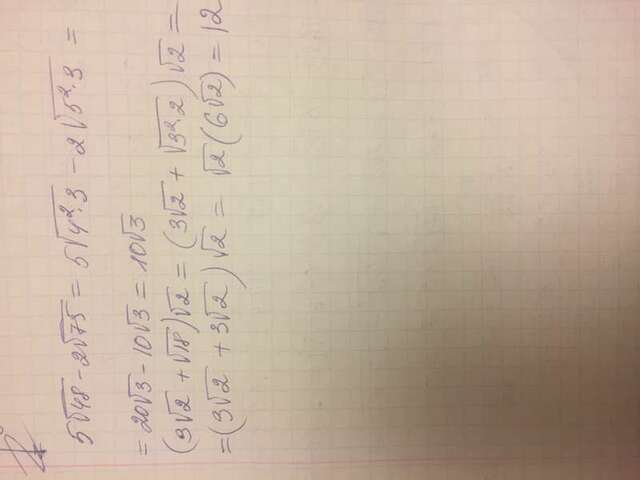 5√48 - 2√75 = 5√4²·3 - 2√5²·3 =
= 20√3 - 10√3 = 10√3
(3√2 + √18)√2 = (3√2 + √3²·2)√2 =
= (3√2 + 3√2)√2 = √2(6√2) = 12